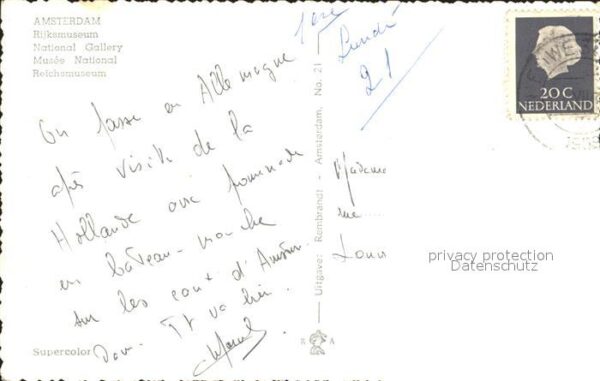 AMSTERDAM
Rijksmuseum
National Gallery
Musée National
Reichsmuseum
On passe en Allemagne
après visite de la
Hollande avec promenade
en bateau-mouche
sur les eaux d'Amster
dam. Tt va bien.
Supercolor
Uitgave: Rembrandt - Amsterdam. No. 21
R A
Lundi
21
20 C
NEDERLAND
Madame
rue
Louis
privacy protection
Datenschutz